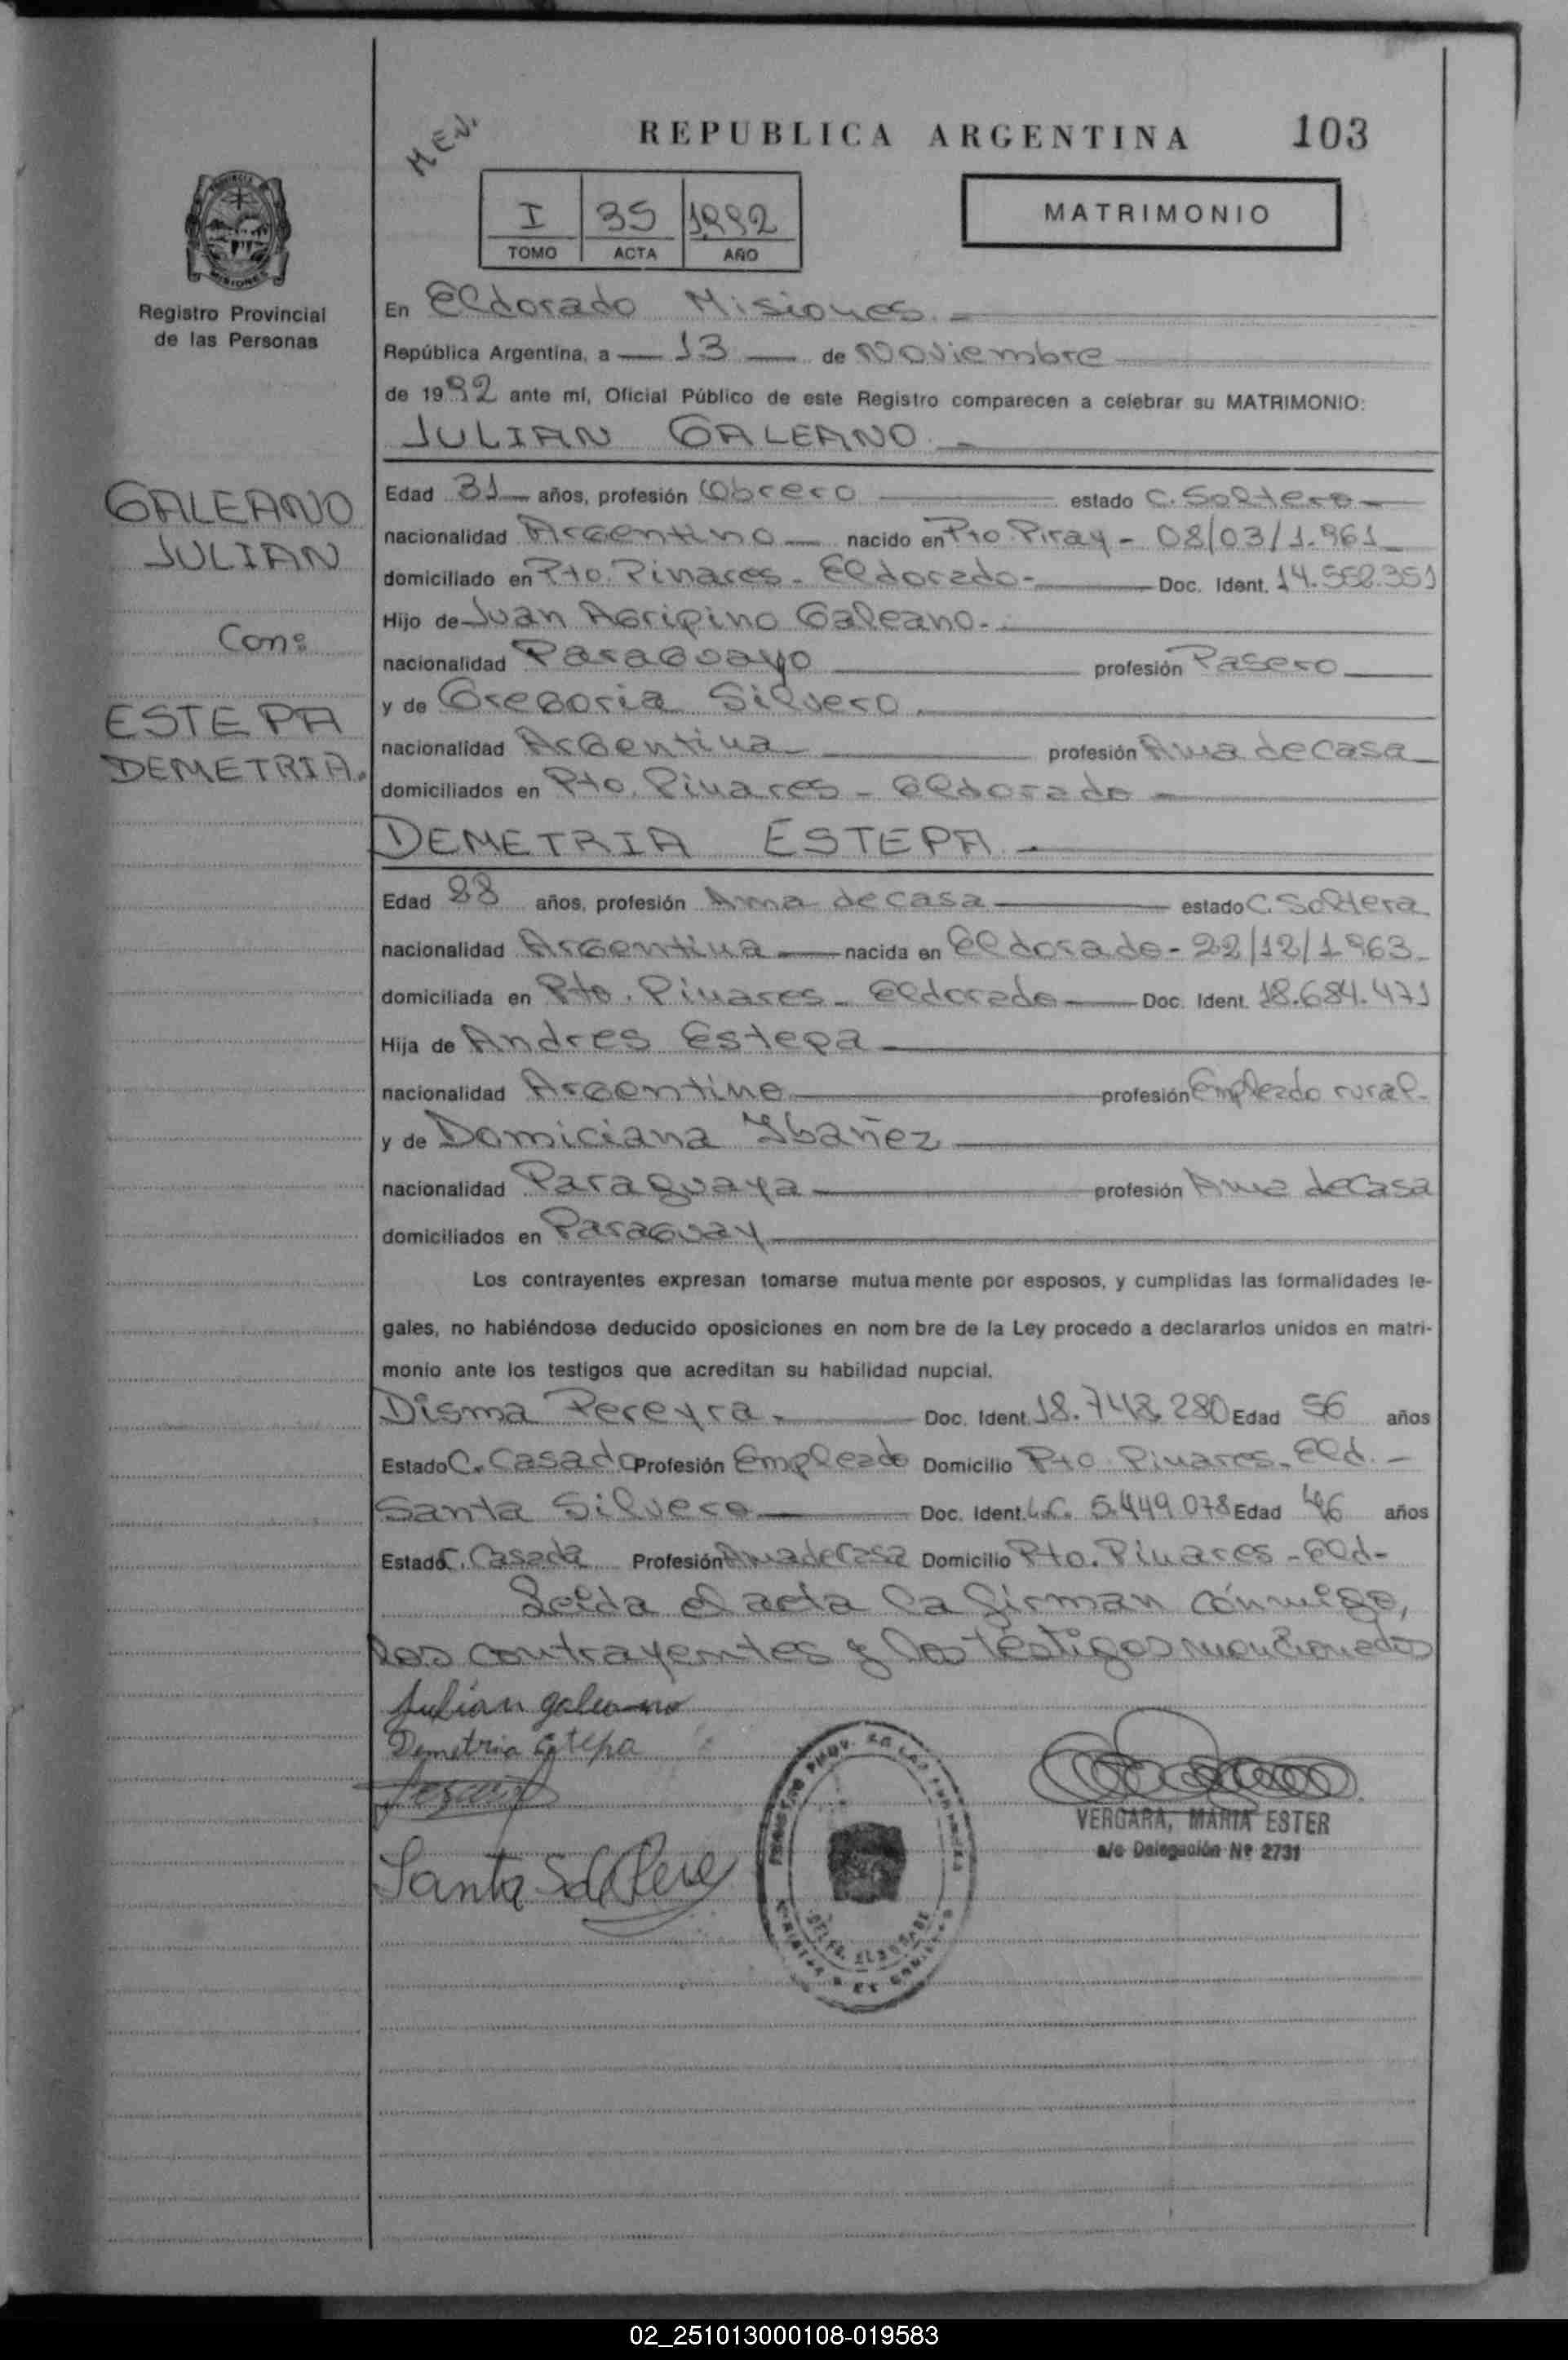 MEN.
REPUBLICA ARGENTINA 103
I 35 1992
TOMO ACTA AÑO
MATRIMONIO
Registro Provincial
de las Personas
En Eldorado Misiones.
República Argentina, a 13 de Noviembre
de 1992 ante mí, Oficial Público de este Registro comparecen a celebrar su MATRIMONIO:
JULIAN GALEANO.
GALEANO
JULIAN
Con:
ESTEPA
DEMETRIA.
Edad 31 años, profesión Obrero estado C. Soltero
nacionalidad Argentino nacido en Pto Piray - 08/03/1.961
domiciliado en Pto. Pinares - Eldorado - Doc. Ident. 14.552.351
Hijo de Juan Agripino Galeano.
nacionalidad Paraguayo profesión Pasero
y de Gregoria Silvero.
nacionalidad Argentina profesión Ama de casa
domiciliados en Pto. Pinares - Eldorado -
DEMETRIA ESTEPA.
Edad 28 años, profesión Ama de casa estado C. Soltera
nacionalidad Argentina nacida en Eldorado - 22/12/1963
domiciliada en Pto. Pinares - Eldorado Doc. Ident. 18.684.471
Hija de Andres Estepa
nacionalidad Argentino profesión Empleado rural.
y de Domiciana Ibañez
nacionalidad Paraguaya profesión Ama de casa
domiciliados en Paraguay
Los contrayentes expresan tomarse mutua mente por esposos, y cumplidas las formalidades le-
gales, no habiéndose deducido oposiciones en nom bre de la Ley procedo a declararlos unidos en matri-
monio ante los testigos que acreditan su habilidad nupcial.
Disma Pereyra. Doc. Ident. 18.742.280 Edad 56 años
Estado C. Casado Profesión Empleado Domicilio Pto. Pinares - Eld. -
Santa Silvero Doc. Ident. L.C. 5.449.078 Edad 46 años
Estado C. Casada Profesión Ama de Casa Domicilio Pto. Pinares - Eld -
Leida el acta la firman conmigo,
los contrayentes y los testigos mencionados
Julian galeano
Demetria Estepa
Santa S de Pere
VERGARA, MARIA ESTER
a/c Delegación Nº 2731
02_251013000108-019583